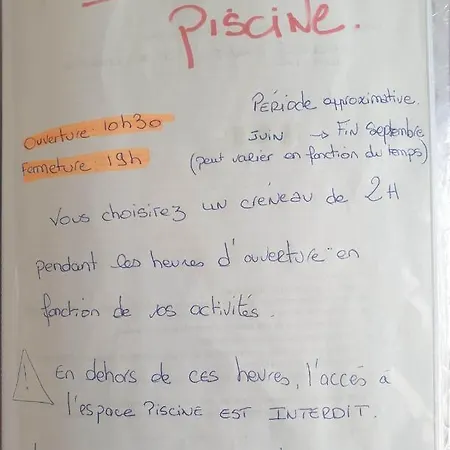 PISCINE.
PÉRIODE approximative.
Ouverture: 10h30
JUIN → FIN Septembre
Fermeture: 19h
(peut varier en fonction du temps)
Vous choisirez un créneau de 2H
pendant les heures d'ouverture en
fonction de vos activités.
En dehors de ces heures, l'accès à
l'espace PISCINE EST INTERDIT.